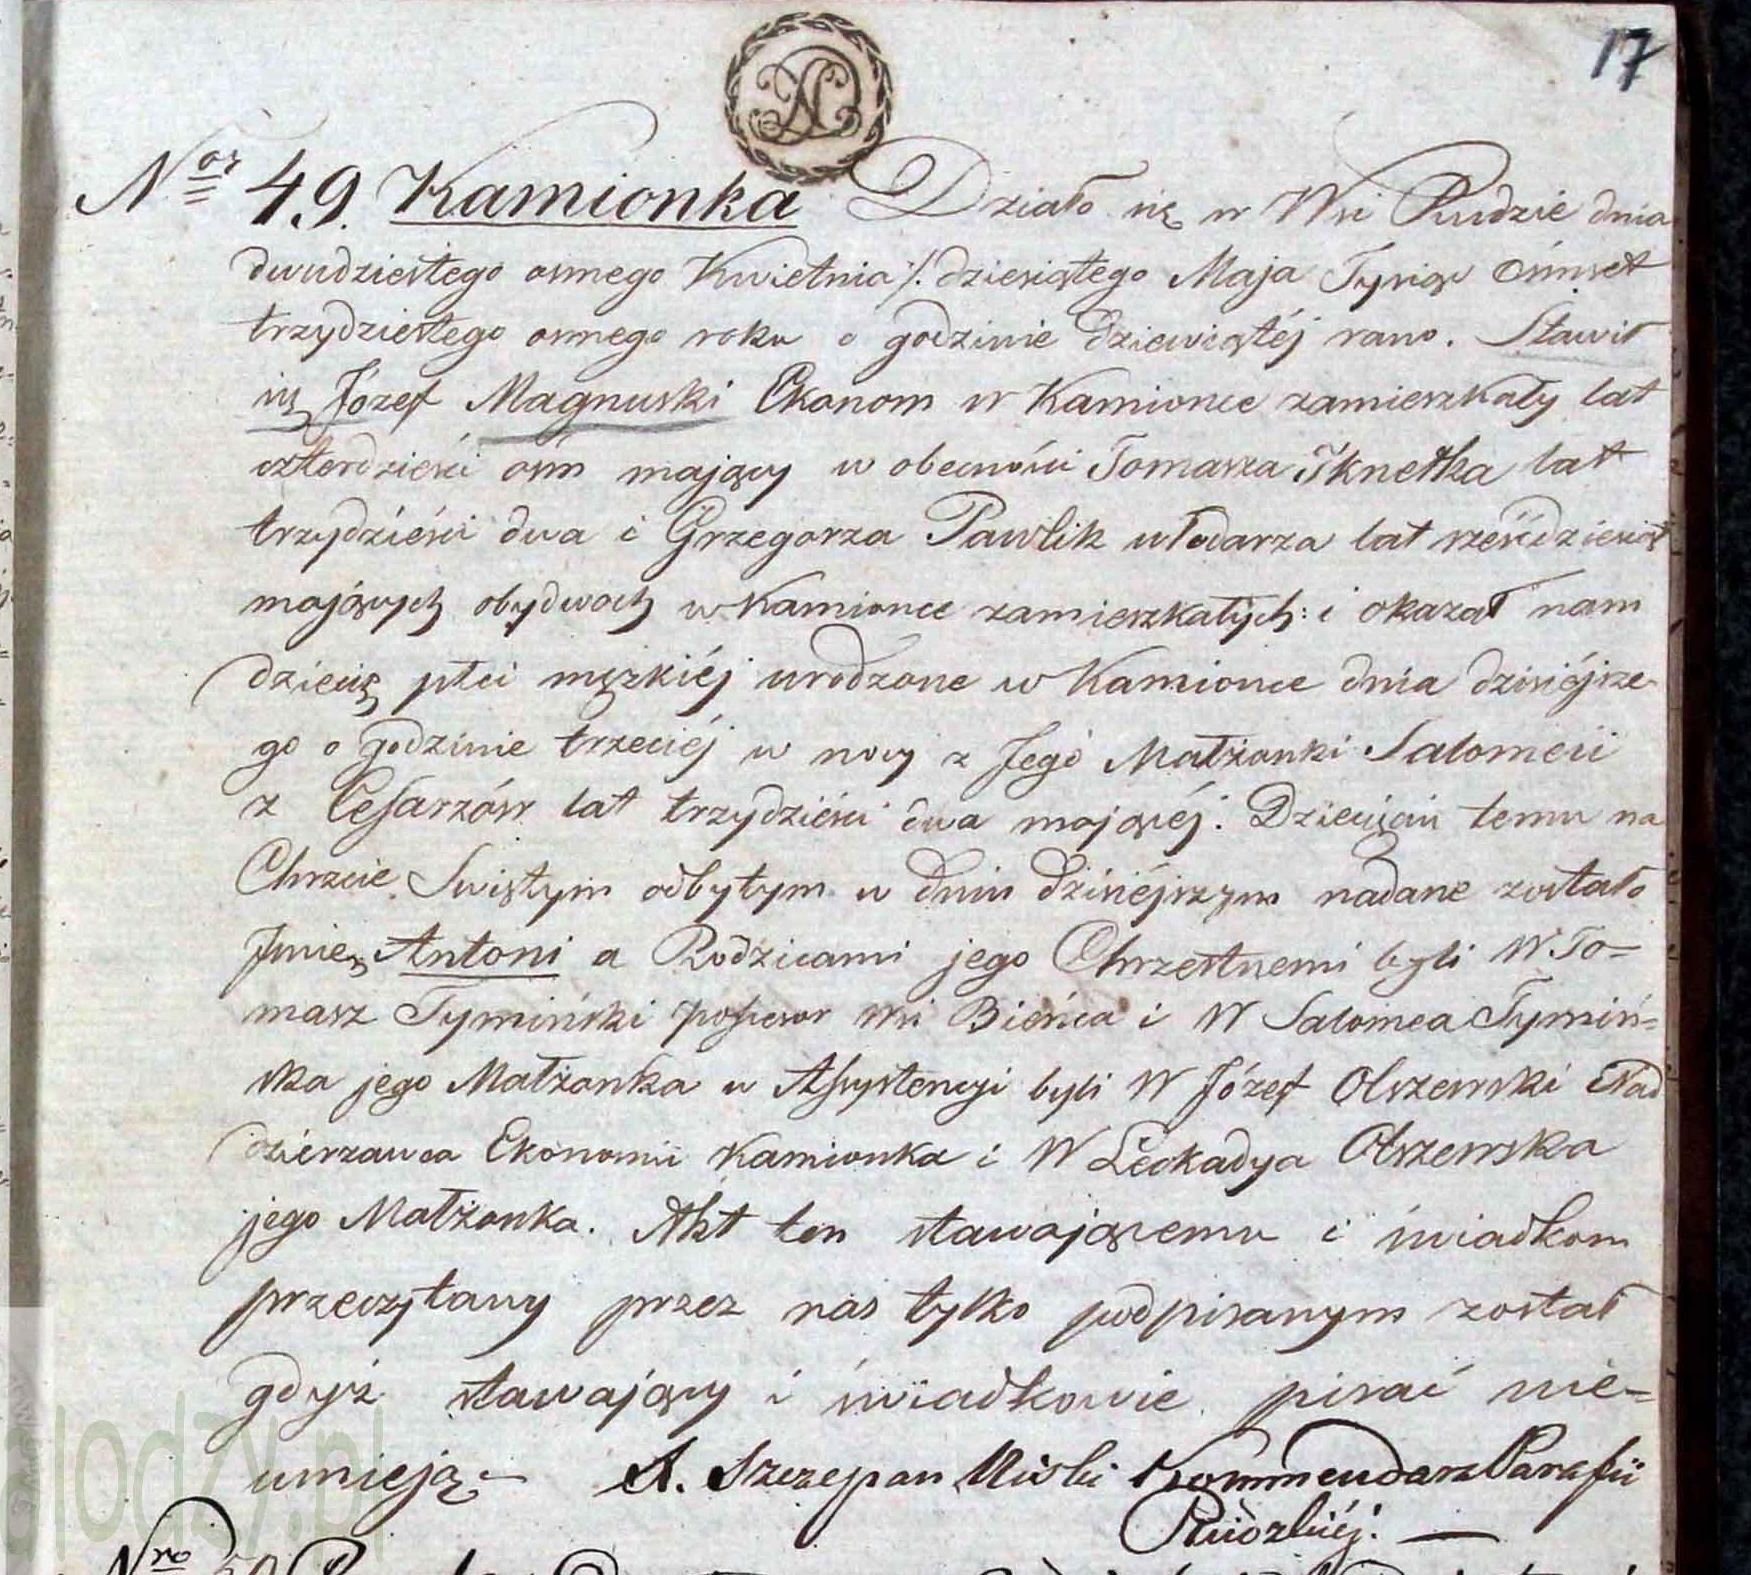 17
Nor 49. Kamionka Działo się w Wsi Rudzie dnia
dwudziestego osmego Kwietnia /. dziesiątego Maja Tysiąc ośmset
trzydziestego osmego roku o godzinie dziewiątéj rano. Stawił
się Józef Magnuski Ekonom w Kamionce zamieszkały lat
czterdzieści ośm mający w obecności Tomasza lat
trzydzieści dwa i Grzegorza Pawlik włodarza lat sześćdziesiąt
mających obydwoch w Kamionce zamieszkałych: i okazał nam
dziecię płci męzkiéj urodzone w Kamionce dnia dzisiéjsze-
go o godzinie trzeciéj w nocy z Jego Małżonki Salomeii
z Cesarzów lat trzydzieści dwa mającéj. Dziecięciu temu na
Chrzcie Swiętym odbytym w dniu dzisiéjszym nadane zostało
Jmie Antoni a Rodzicami jego Chrzestnemi byli W. To=
masz Tymiński possesor wsi Bieńca i W Salomea Tymiń=
ska jego Małżonka w Assystencyi byli W Józef Olszewski Nad
dzierzawca Ekonomii Kamionka i W Leokadya Olszewska
jego Małżonka. Akt ten stawającemu i świadkom
przeczytany przez nas tylko podpisanym został
gdyż stawający i świadkowie pisać nie=
umieją. Szczepan Kommendarz Parafii
Rudzkiéj. —
Nro 50
alodzy.pl